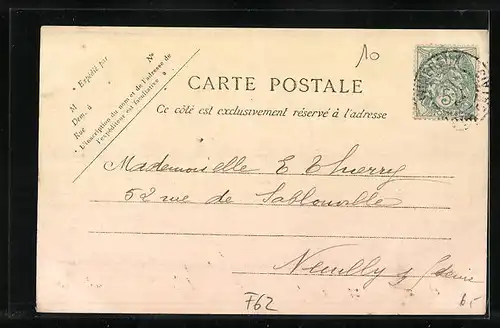 10
Expédié par
N°
M
Dem. à
Rue
L'inscription du nom et de l'adresse de
l'expéditeur est facultative
CARTE POSTALE
Ce côté est exclusivement réservé à l'adresse
5
Mademoiselle E Thierry
52 rue de Sablonville
Neuilly s/ Seine
F62